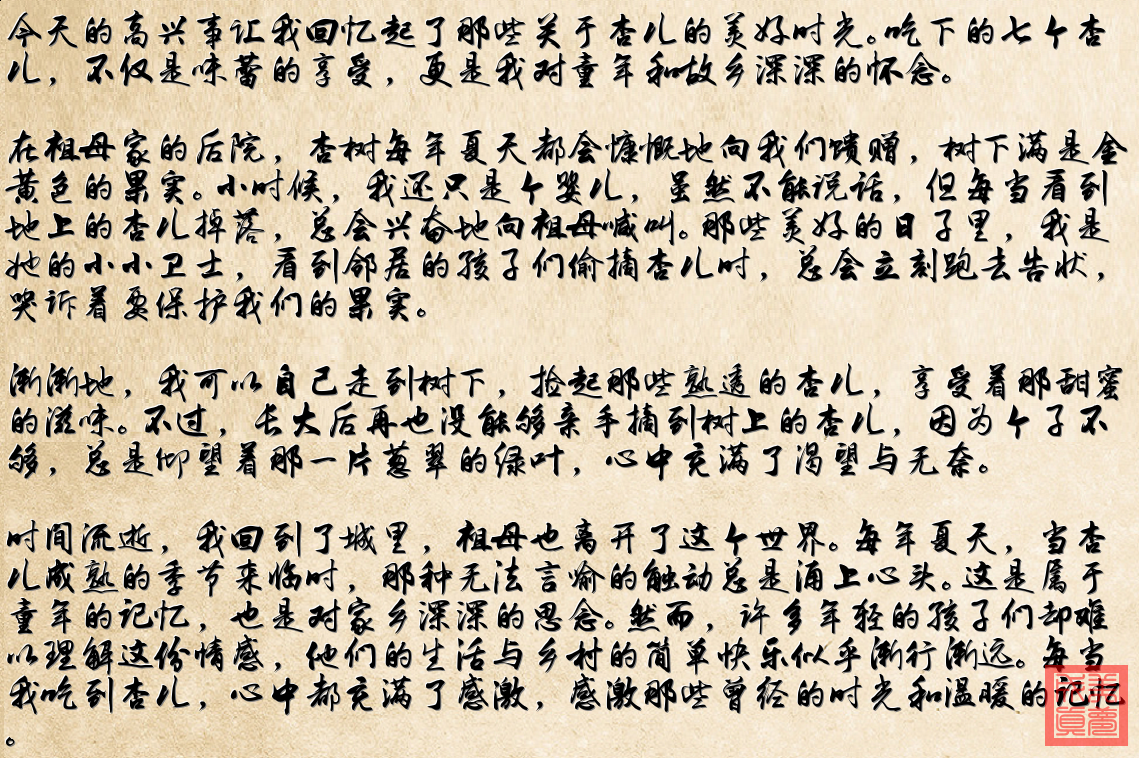 今天的高兴事让我回忆起了那些关于杏儿的美好时光。吃下的七个杏
儿，不仅是味蕾的享受，更是我对童年和故乡深深的怀念。
在祖母家的后院，杏树每年夏天都会慷慨地向我们馈赠，树下满是金
黄色的果实。小时候，我还只是个婴儿，虽然不能说话，但每当看到
地上的杏儿掉落，总会兴奋地向祖母喊叫。那些美好的日子里，我是
她的小小卫士，看到邻居的孩子们偷摘杏儿时，总会立刻跑去告状，
哭诉着要保护我们的果实。
渐渐地，我可以自己走到树下，捡起那些熟透的杏儿，享受着那甜蜜
的滋味。不过，长大后再也没能够亲手摘到树上的杏儿，因为个子不
够，总是仰望着那一片葱翠的绿叶，心中充满了渴望与无奈。
时间流逝，我回到了城里，祖母也离开了这个世界。每年夏天，当杏
儿成熟的季节来临时，那种无法言喻的触动总是涌上心头。这是属于
童年的记忆，也是对家乡深深的思念。然而，许多年轻的孩子们却难
以理解这份情感，他们的生活与乡村的简单快乐似乎渐行渐远。每当
我吃到杏儿，心中都充满了感激，感激那些曾经的时光和温暖的记忆
。